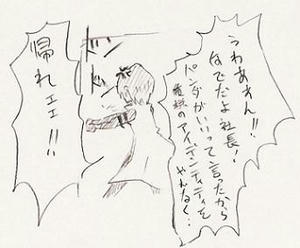 うわああん!!
なでだよ社長!
パンダがいいって言ったから
のアイデンティティを
ドン
ドン
帰れェェ!!